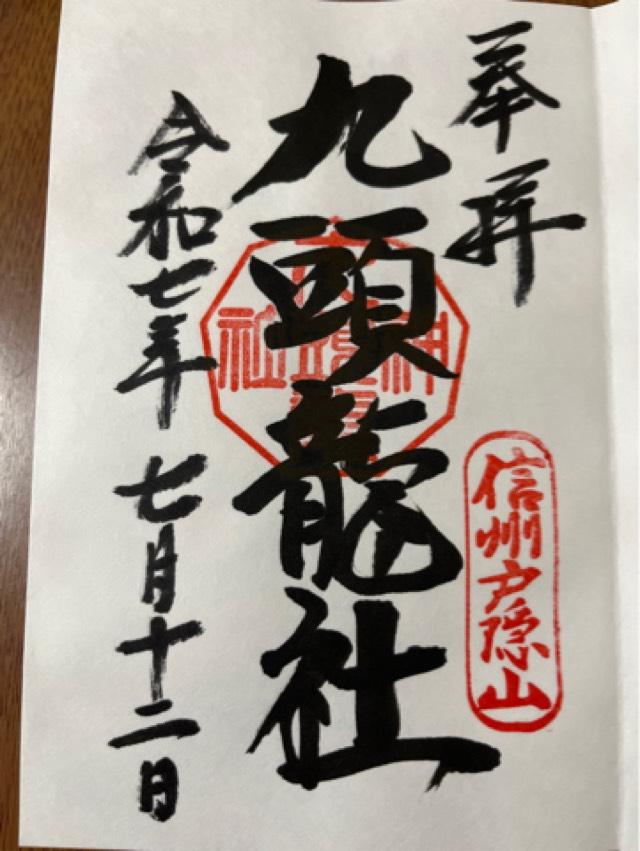 奉拝
信州戸隠山
九頭龍社
令和七年七月十二日